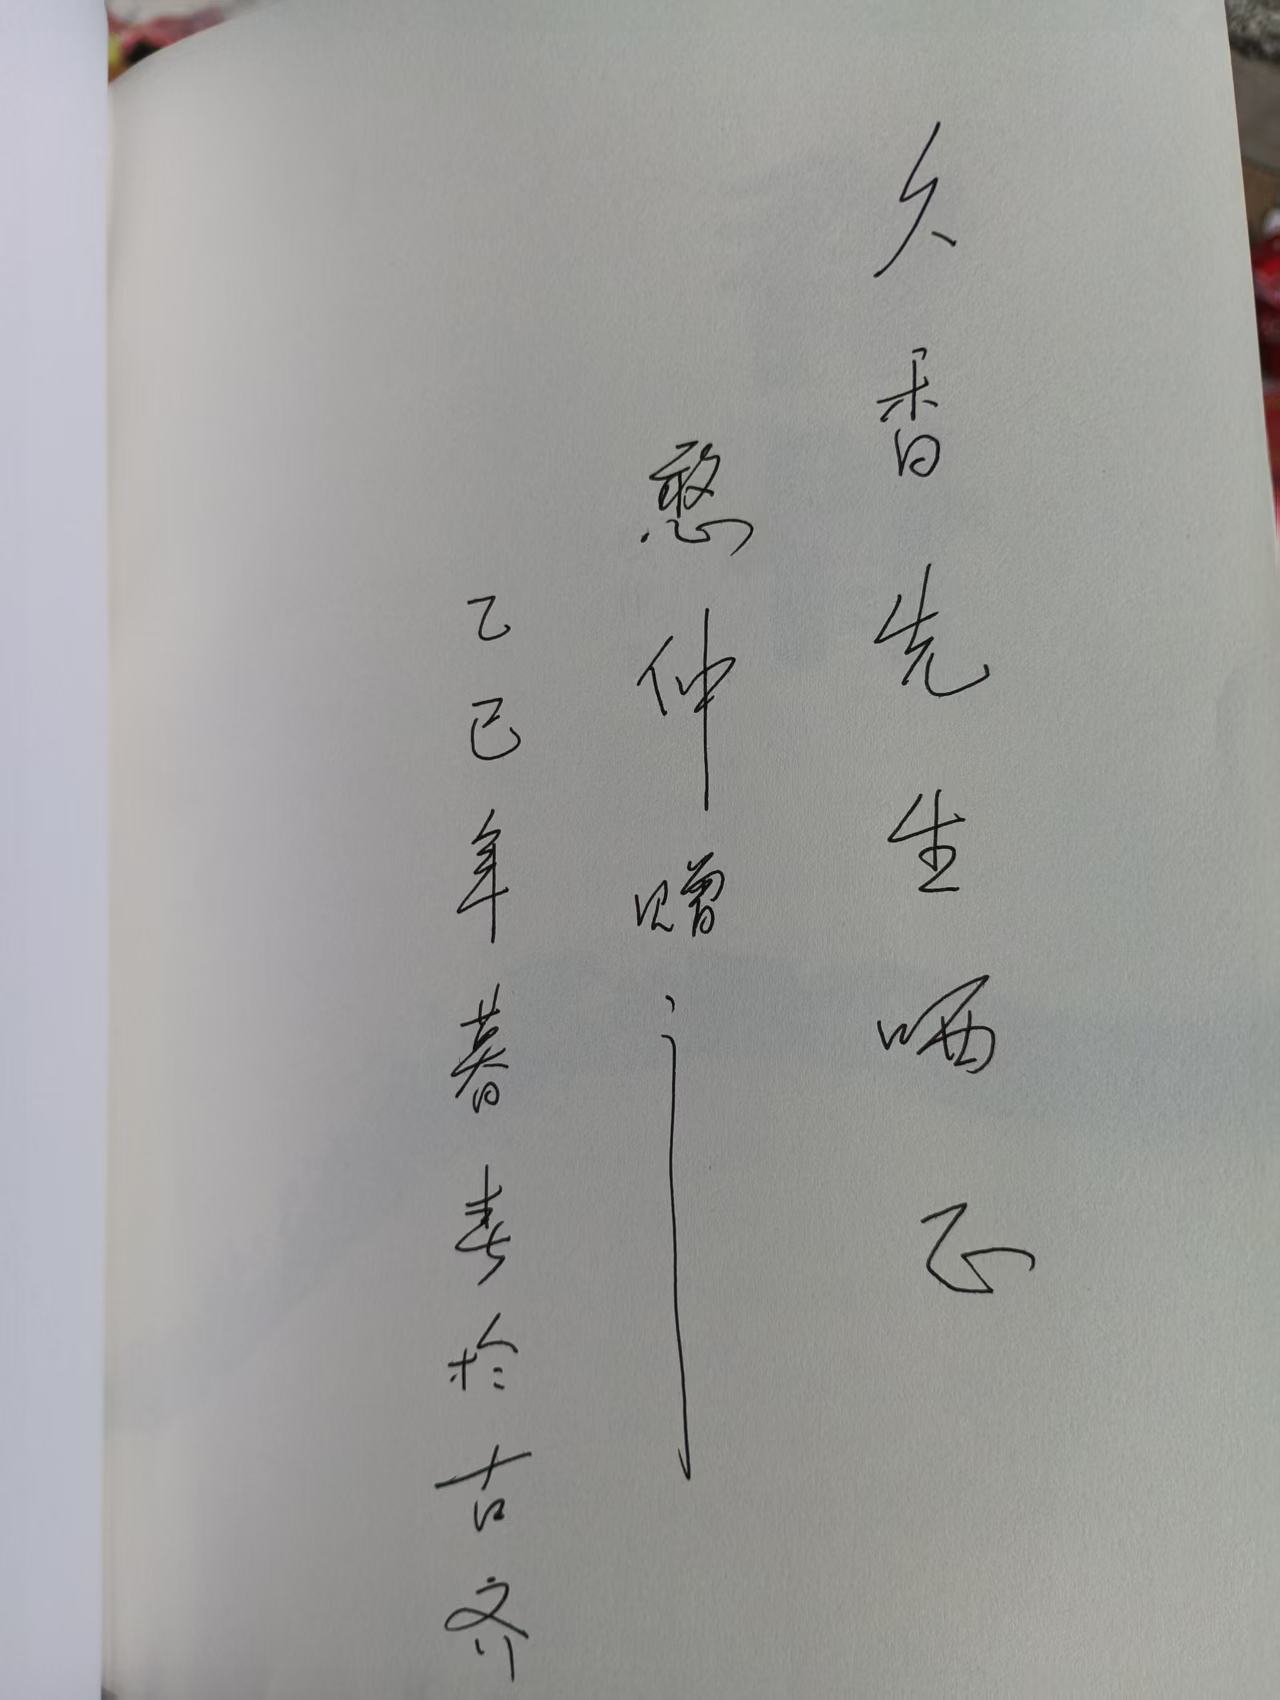 久香先生哂正
憨仲赠
乙巳年暮春於古齐